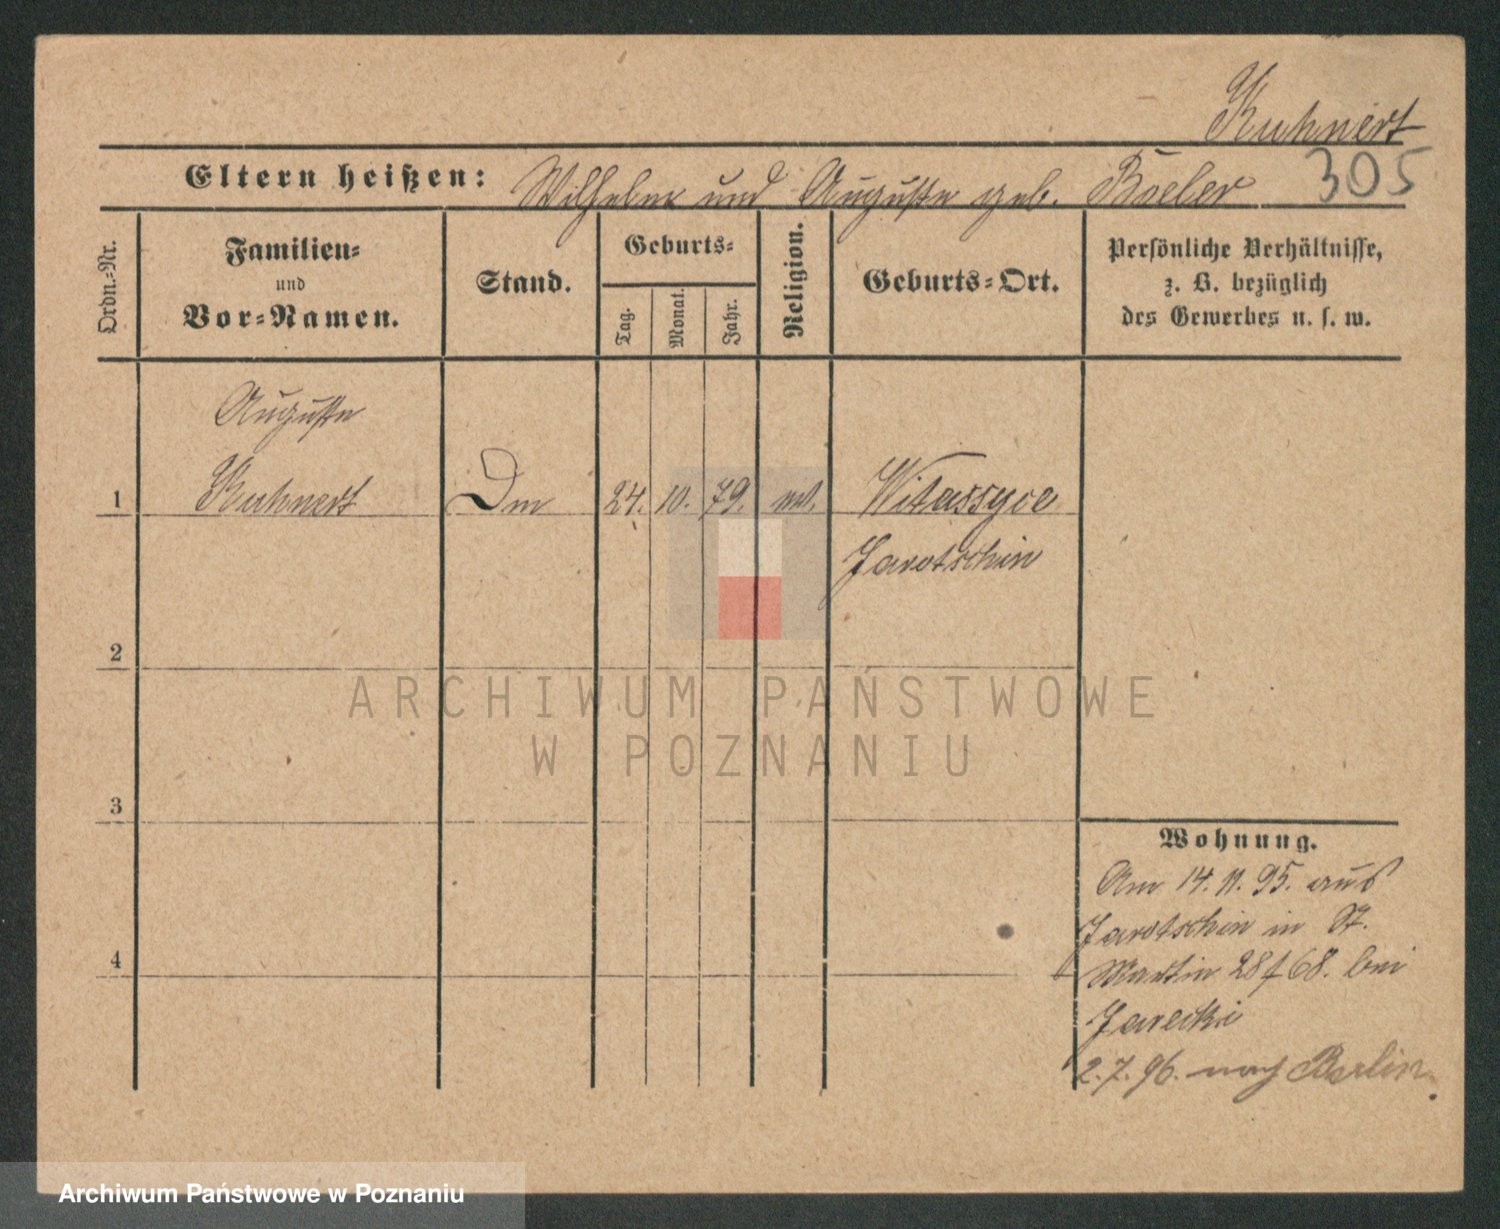 Kuhnert
305
Eltern heißen: Wilhelm und Auguste geb. Boeler
Ordn.-Nr.
Familien-
und
Vor-Namen.
Stand.
Geburts-
Tag.
Monat.
Jahr.
Religion.
Geburts-Ort.
Persönliche Verhältnisse,
z. B. bezüglich
des Gewerbes u. s. w.
Auguste
1 Kuhnert 24. 10. 79. Witassyce
Jarotschin
2
3
4
Wohnung.
Am 14. 11. 95. aus
Jarotschin in St.
Martin 28/68. bei
Jarecki
2. 7. 96. nach Berlin.
ARCHIWUM PAŃSTWOWE
W POZNANIU
Archiwum Państwowe w Poznaniu